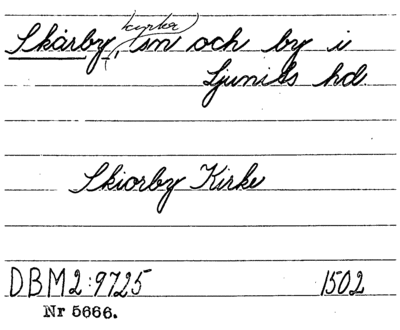 Skårby, kyrka, sn och by i
Ljunits hd.
Skiorby Kirke
DBM2:9725 1502
Nr 5666.